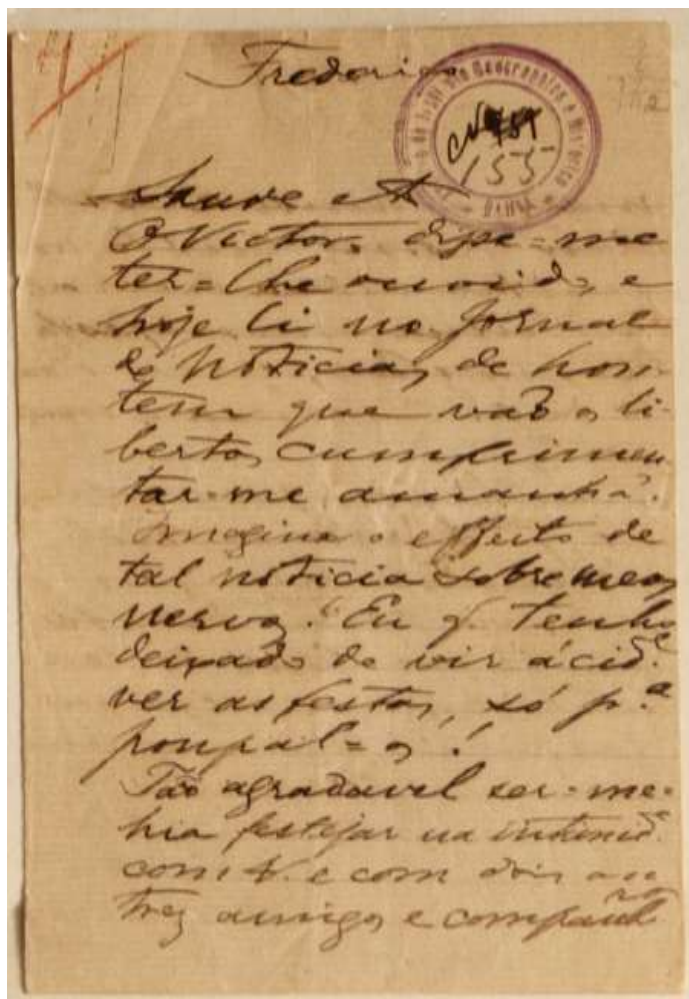 Frederico
155
Saude etc
O Victor, disse-me
ter-lhe ouvido, e
hoje li no Jornal
de Noticias, de hon-
tem que vaõ os li-
bertos cumprimen
tar-me amanhã.
Imagina o effeito de
tal noticia sobre meos
nervos. Eu q. tenho
deixado de vir á cid.e
ver as festas, só p.a
poupal-os!
Taõ agradavel ser-me-
hia festejar na intimid.e
com V. e com dois ou
trez amigos e companh